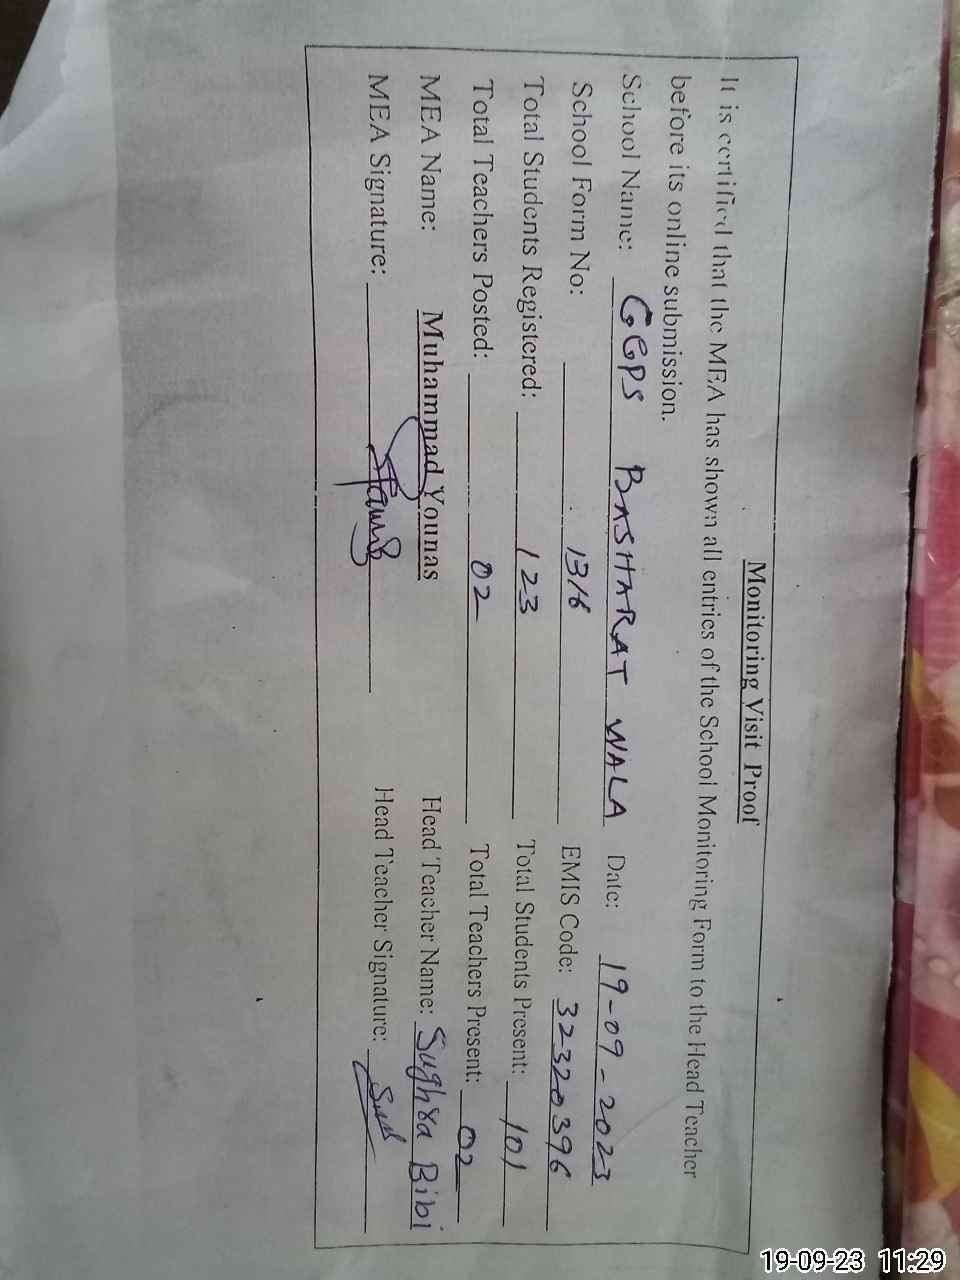 Monitoring Visit Proof
It is certified that the MEA has shown all entries of the School Monitoring Form to the Head Teacher
before its online submission.
School Name: GGPS BASHARAT WALA Date: 19-09-2023
School Form No: 1316 EMIS Code: 32320396
Total Students Registered: 123 Total Students Present: 101
Total Teachers Posted: 02 Total Teachers Present: 02
MEA Name: Muhammad Younas Head Teacher Name: Sughra Bibi
MEA Signature: Head Teacher Signature:
19-09-23 11:29